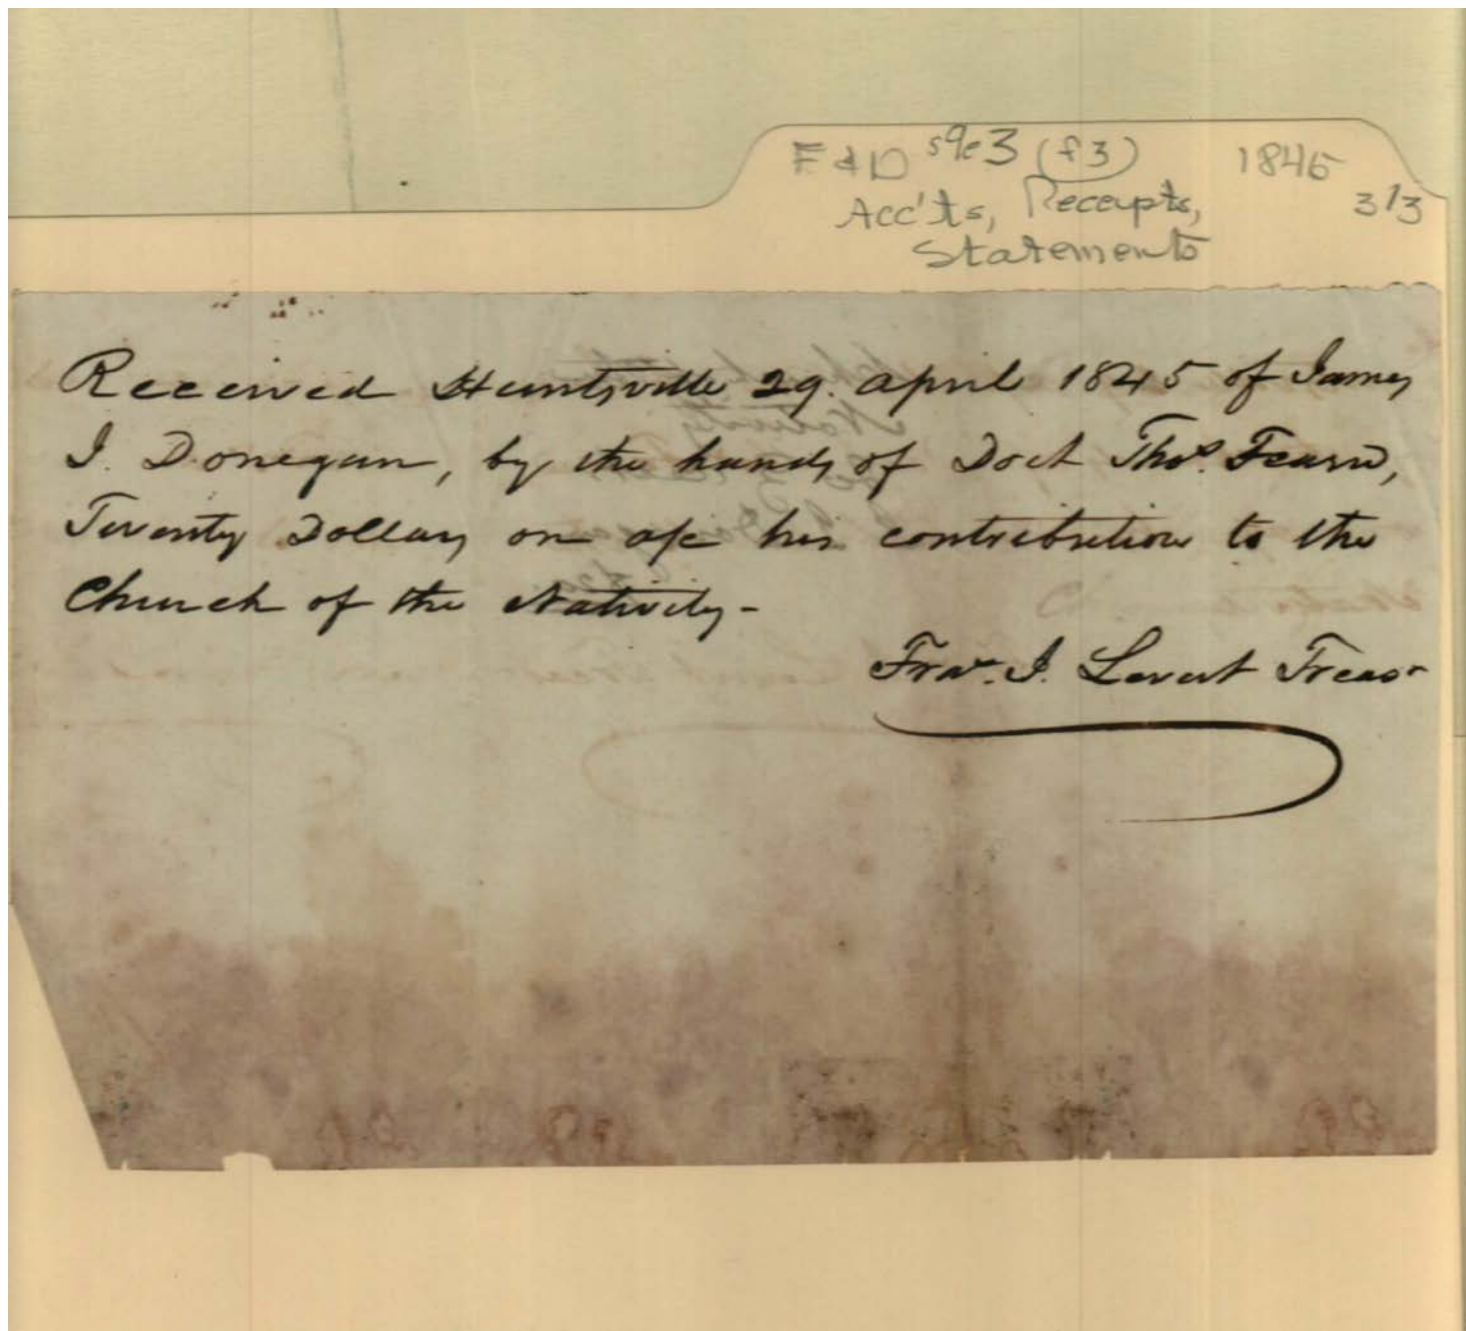 F & D s9e3 (f3) 1845
Acc'ts, Receipts, 3/3
Statements
Received Huntsville 29. april 1845 of James
J. Donegan, by the hands of Doct Thos. Fearn,
Twenty Dollars on a/c his contribution to the
Church of the Nativity -
Fras. J. Levert Treasr